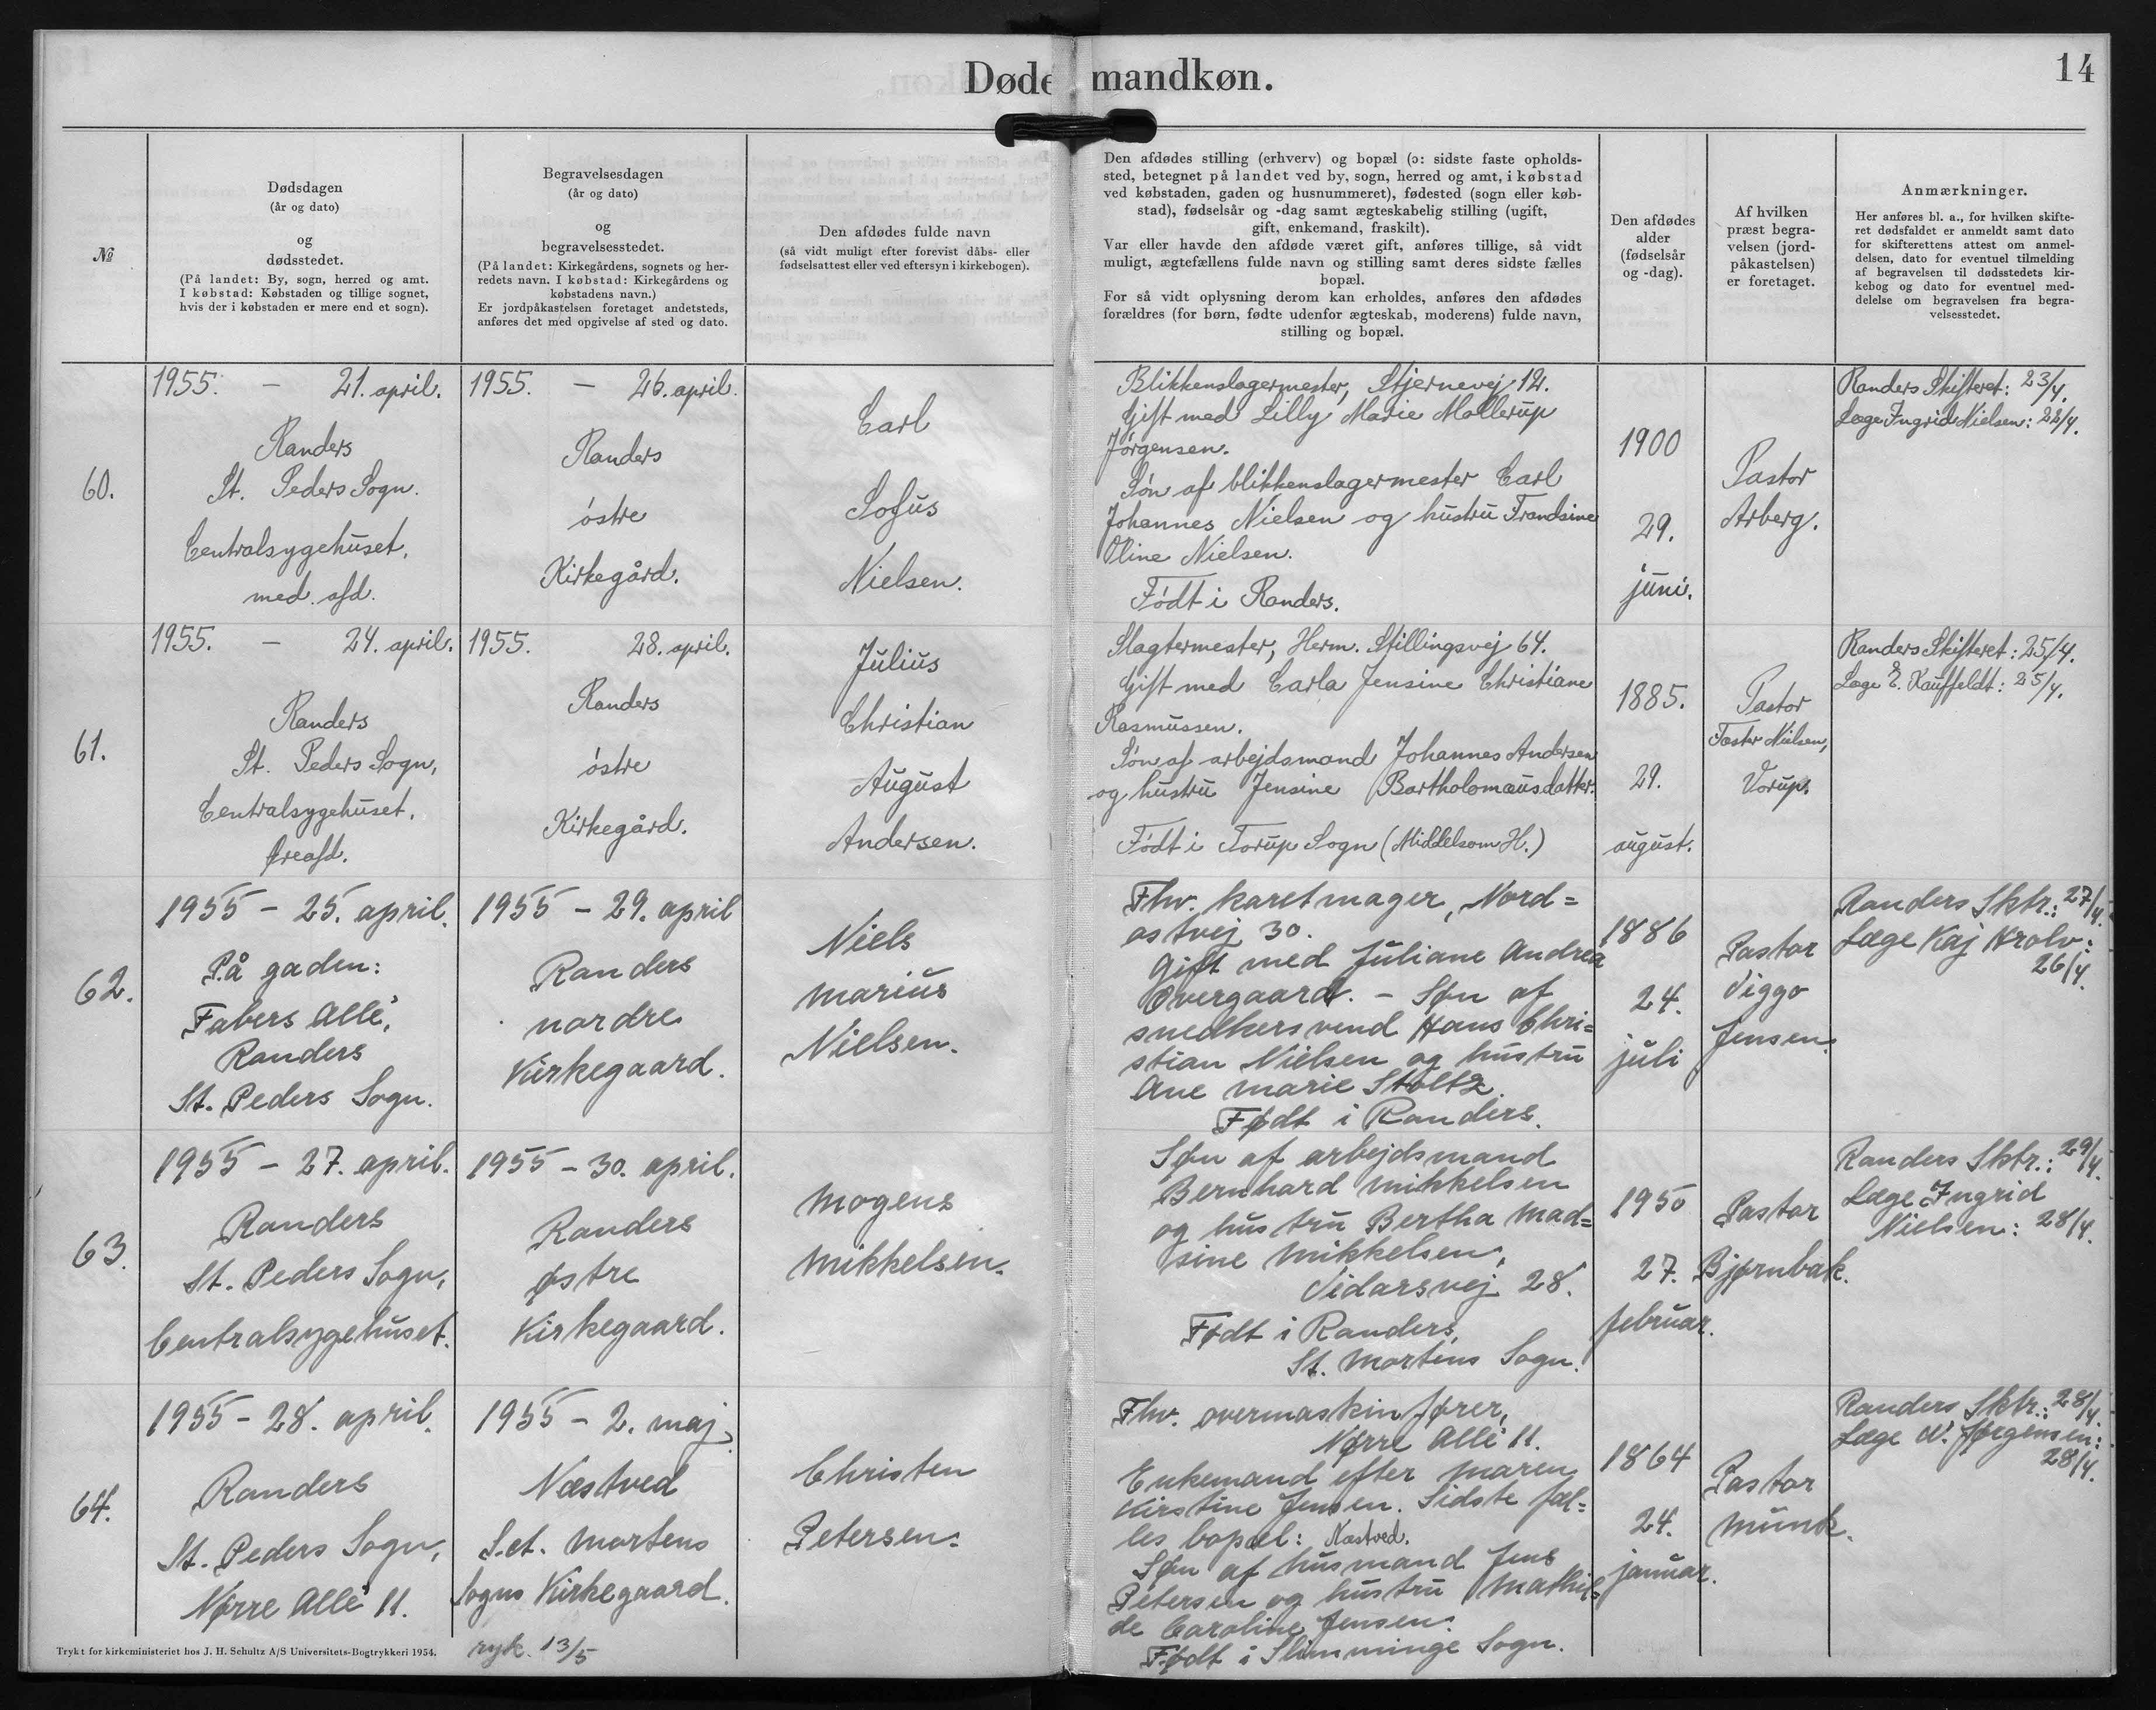 Døde mandkøn.
14
№
Dødsdagen
(år og dato)
og
dødsstedet.
(På landet: By, sogn, herred og amt.
I købstad: Købstaden og tillige sognet,
hvis der i købstaden er mere end et sogn).
Begravelsesdagen
(år og dato)
og
begravelsesstedet.
(På landet: Kirkegårdens, sognets og her-
redets navn. I købstad: Kirkegårdens og
købstadens navn.)
Er jordpåkastelsen foretaget andetsteds,
anføres det med opgivelse af sted og dato.
Den afdødes fulde navn
(så vidt muligt efter forevist dåbs- eller
fødselsattest eller ved eftersyn i kirkebogen).
Den afdødes stilling (erhverv) og bopæl (ɔ: sidste faste opholds-
sted, betegnet på landet ved by, sogn, herred og amt, i købstad
ved købstaden, gaden og husnummeret), fødested (sogn eller køb-
stad), fødselsår og -dag samt ægteskabelig stilling (ugift,
gift, enkemand, fraskilt).
Var eller havde den afdøde været gift, anføres tillige, så vidt
muligt, ægtefællens fulde navn og stilling samt deres sidste fælles
bopæl.
For så vidt oplysning derom kan erholdes, anføres den afdødes
forældres (for børn, fødte udenfor ægteskab, moderens) fulde navn,
stilling og bopæl.
Den afdødes
alder
(fødselsår
og -dag).
Af hvilken
præst begra-
velsen (jord-
påkastelsen)
er foretaget.
Anmærkninger.
Her anføres bl. a., for hvilken skifte-
ret dødsfaldet er anmeldt samt dato
for skifterettens attest om anmel-
delsen, dato for eventuel tilmelding
af begravelsen til dødsstedets kir-
kebog og dato for eventuel med-
delelse om begravelsen fra begra-
velsesstedet.
60.
1955. - 21. april.
Randers
St. Peders Sogn.
Centralsygehuset,
med. afd.
1955. - 26. april.
Randers
østre
Kirkegård.
Carl
Sofus
Nielsen.
Blikkenslagermester, Stjernevej 12.
Gift med Lilly Marie Møllerup
Jørgensen.
Søn af blikkenslagermester Carl
Johannes Nielsen og hustru Frandsine
Oline Nielsen.
Født i Randers.
1900
29.
juni.
Pastor
Arberg.
Randers Skifteret: 23/4.
Læge Ingrid Nielsen: 22/4.
61.
1955. - 24. april.
Randers
St. Peders Sogn,
Centralsygehuset,
øreafd.
1955. 28. april.
Randers
østre
Kirkegård.
Julius
Christian
August
Andersen.
Slagtermester, Herm. Stillingsvej 64.
Gift med Carla Jensine Christiane
Rasmussen.
Søn af arbejdsmand Johannes Andersen
og hustru Jensine Bartholomæusdatter.
Født i Torup Sogn (Middelsom H.)
1885.
29.
august.
Pastor
Foster Nielsen,
Vorup.
Randers Skifteret: 25/4.
Læge E. Kauffeldt: 25/4.
62.
1955 - 25. april.
På gaden:
Fabers Allé,
Randers
St. Peders Sogn.
1955 - 29. april
Randers
nordre
Kirkegaard.
Niels
Marius
Nielsen.
Fhv. karetmager, Nord=
østvej 30.
Gift med Juliane Andrea
Overgaard. - Søn af
snedkersvend Hans Chri=
stian Nielsen og hustru
Ane Marie Stoltz.
Født i Randers.
1886
24.
juli
Pastor
Viggo
Jensen.
Randers Sktr.: 27/4.
Læge Kaj Krolv:
26/4.
63.
1955 - 27. april.
Randers
St. Peders Sogn,
Centralsygehuset.
1955 - 30. april.
Randers
østre
Kirkegaard.
Mogens
Mikkelsen.
Søn af arbejdsmand
Bernhard Mikkelsen
og hustru Bertha Mad=
sine Mikkelsen,
Vidarsvej 28.
Født i Randers,
St. Mortens Sogn.
1950
27.
februar.
Pastor
Bjørnbak.
Randers Sktr.: 29/4.
Læge Ingrid
Nielsen: 28/4.
64.
1955 - 28. april.
Randers
St. Peders Sogn,
Nørre Allé 11.
1955 - 2. maj
Næstved
Sct. Mortens
Sogns Kirkegaard.
ryk. 13/5
Christen
Petersen.
Fhv. overmaskinfører,
Nørre Allé 11.
Enkemand efter Maren
Kirstine Jensen. Sidste fæl=
les bopæl: Næstved.
Søn af husmand Jens
Petersen og hustru Mathil=
de Caroline Jensen.
Født i Slimminge Sogn.
1864
24.
januar.
Pastor
Munk.
Randers Sktr.: 28/4.
Læge V. Jørgensen:
28/4.
Trykt for kirkeministeriet hos J. H. Schultz A/S Universitets-Bogtrykkeri 1954.